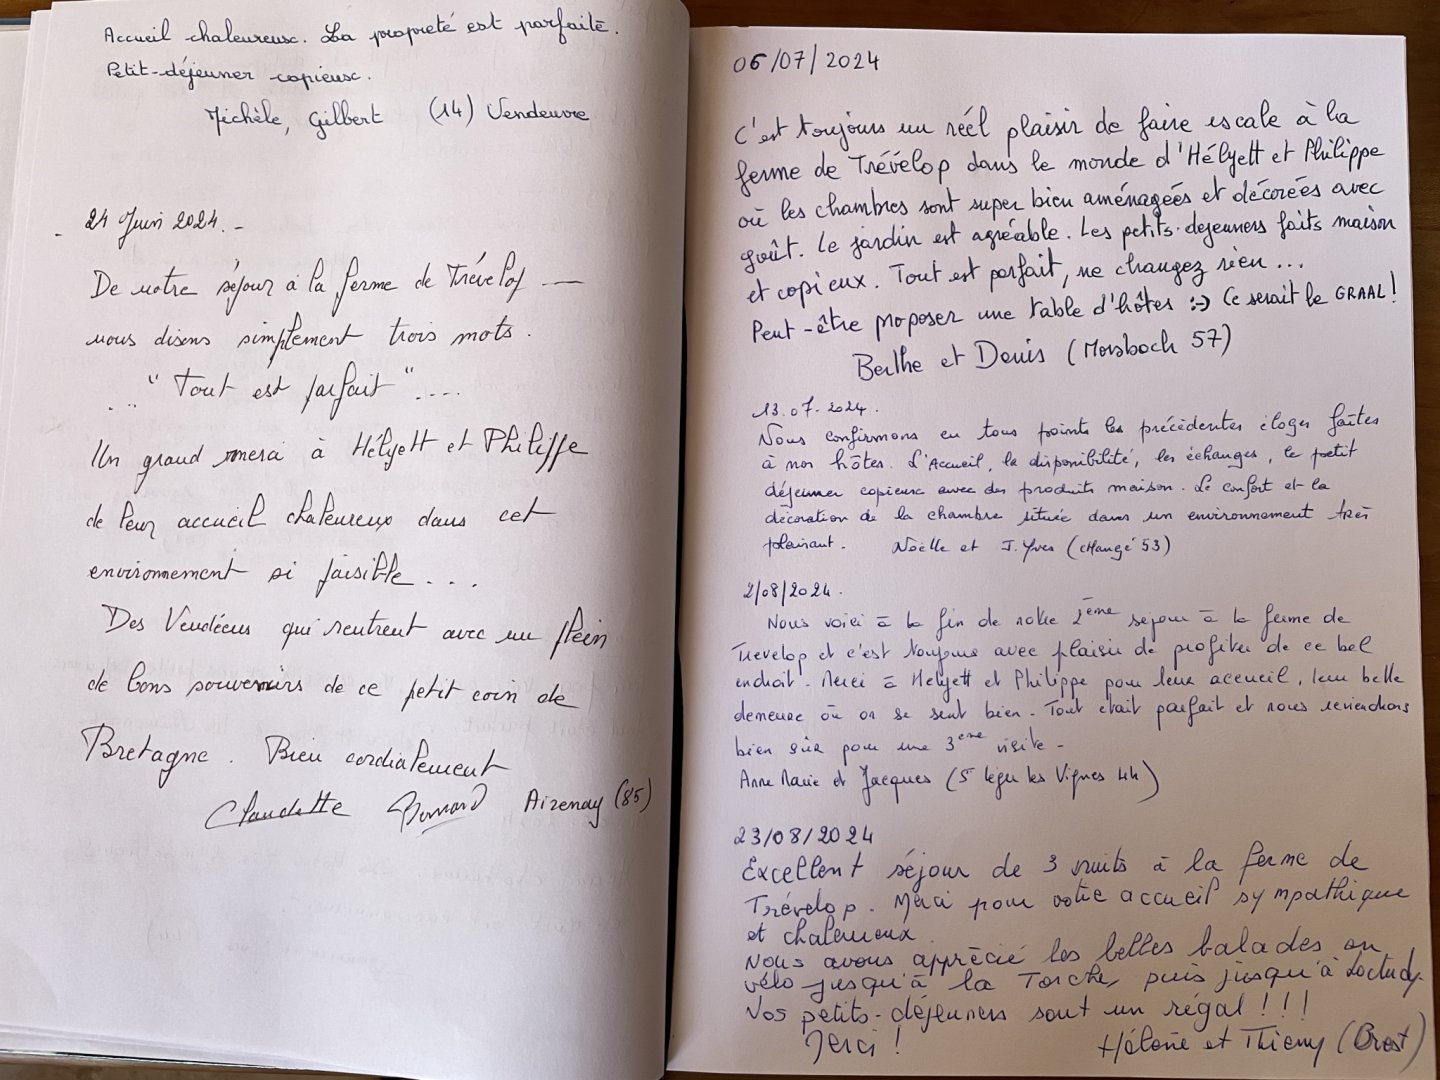 Accueil chaleureux. La propreté est parfaite.
Petit-déjeuner copieux.
Michèle, Gilbert (14) Vendeuvre
24 Juin 2024. -
De notre séjour à la ferme de Trévelop ---
nous disons simplement trois mots.
"Tout est parfait"....
Un grand merci à Hélyett et Philippe
de leur accueil chaleureux dans cet
environnement si paisible...
Des Vendéens qui rentrent avec un plein
de bons souvenirs de ce petit coin de
Bretagne. Bien cordialement
Claudette Bernard Aizenay (85)
06/07/2024
C'est toujours un réel plaisir de faire escale à la
ferme de Trévelop dans le monde d'Hélyett et Philippe
où les chambres sont super bien aménagées et décorées avec
goût. Le jardin est agréable. Les petits-déjeuners faits maison
et copieux. Tout est parfait, ne changez rien...
Peut-être proposer une table d'hôtes :-) Ce serait le GRAAL!
Berthe et Denis (Morsbach 57)
13.07.2024.
Nous confirmons en tous points les précédentes éloges faites
à nos hôtes. L'Accueil, la disponibilité, les échanges, le petit
déjeuner copieux avec des produits maison. Le confort et la
décoration de la chambre située dans un environnement très
plaisant. Noëlle et J.Yves (Changé 53)
2/08/2024.
Nous voici à la fin de notre 2ème sejour à la ferme de
Trevelop et c'est toujours avec plaisir de profiter de ce bel
endroit. Merci à Helyett et Philippe pour leur accueil, leur belle
demeure où on se sent bien. Tout etait parfait et nous reviendrons
bien sûr pour une 3eme visite -
Anne Marie et Jacques (St léger les Vignes 44)
23/08/2024
Excellent séjour de 3 nuits à la ferme de
Trévelop. Merci pour votre accueil sympathique
et chaleureux.
Nous avons apprécié les belles balades en
vélo jusqu'à la Torche, puis jusqu'à Loctudy.
Vos petits-déjeuners sont un régal!!!
Merci! Hélène et Thierry (Brest)